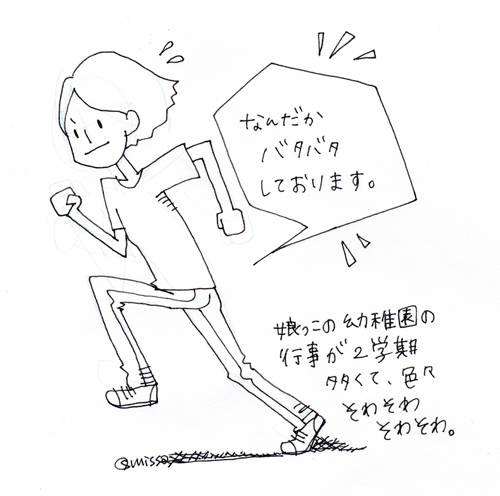 なんだか
バタバタ
しております。
娘っこの幼稚園の
行事が2学期
多くて、色々
そわそわ
そわそわ。
@misso